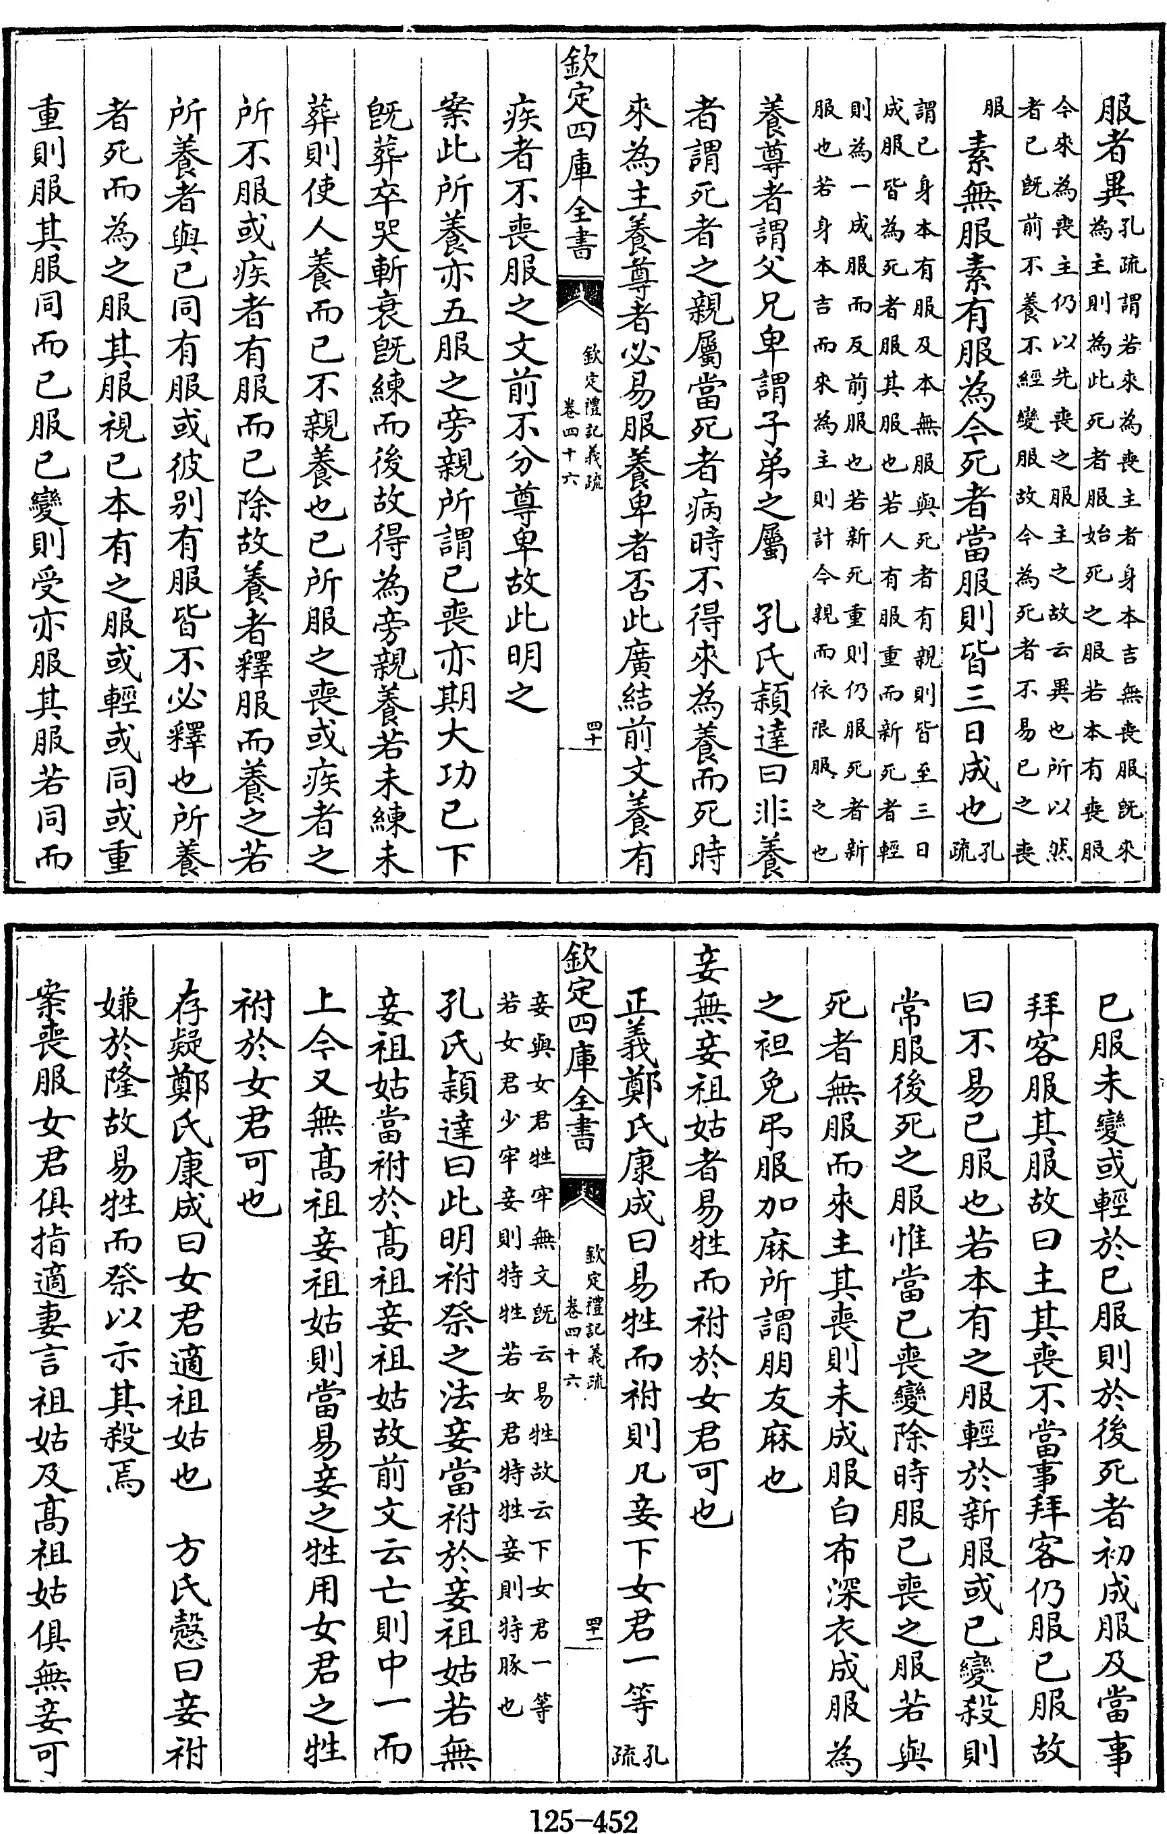 服者異孔疏謂若來為喪主者身本吉無喪服既來
為主則為此死者服始死之服若本有喪服
今來為喪主仍以先喪之服主之故云異也所以然
者已既前不養不經變服故今為死者不易已之喪
服　素無服素有服為今死者當服則皆三日成也孔疏
謂已身本有服及本無服與死者有親則皆至三日
成服皆為死者服其服也若人有服重而新死者輕
則為一成服而反前服也若新死重則仍服死者新
服也若身本吉而來為主則計今親而依限服之也
養尊者謂父兄卑謂子弟之屬　孔氏穎達曰非養
者謂死者之親屬當死者病時不得來為養而死時
來為主養尊者必易服養卑者否此廣結前文養有
欽定四庫全書
欽定禮記義疏
卷四十六
四十
疾者不喪服之文前不分尊卑故此明之
案此所養亦五服之旁親所謂已喪亦期大功已下
既葬卒哭斬衰既練而後故得為旁親養若未練未
葬則使人養而已不親養也已所服之喪或疾者之
所不服或疾者有服而已除故養者釋服而養之若
所養者與已同有服或彼别有服皆不必釋也所養
者死而為之服其服視已本有之服或輕或同或重
重則服其服同而已服已變則受亦服其服若同而
已服未變或輕於已服則於後死者初成服及當事
拜客服其服故曰主其喪不當事拜客仍服已服故
曰不易已服也若本有之服輕於新服或已變殺則
常服後死之服惟當已喪變除時服已喪之服若與
死者無服而來主其喪則未成服白布深衣成服為
之袒免弔服加麻所謂朋友麻也
妾無妾祖姑者易牲而祔於女君可也
正義鄭氏康成曰易牲而祔則凡妾下女君一等孔疏
欽定四庫全書
欽定禮記義疏
卷四十六
四十一
妾與女君牲牢無文既云易牲故云下女君一等
若女君少牢妾則特牲若女君特牲妾則特豚也
孔氏穎達曰此明祔祭之法妾當祔於妾祖姑若無
妾祖姑當祔於髙祖妾祖姑故前文云亡則中一而
上今又無髙祖妾祖姑則當易妾之牲用女君之牲
祔於女君可也
存疑鄭氏康成曰女君適祖姑也　方氏慤曰妾祔
嫌於隆故易牲而祭以示其殺焉
案喪服女君俱指適妻言祖姑及髙祖姑俱無妾可
125-452